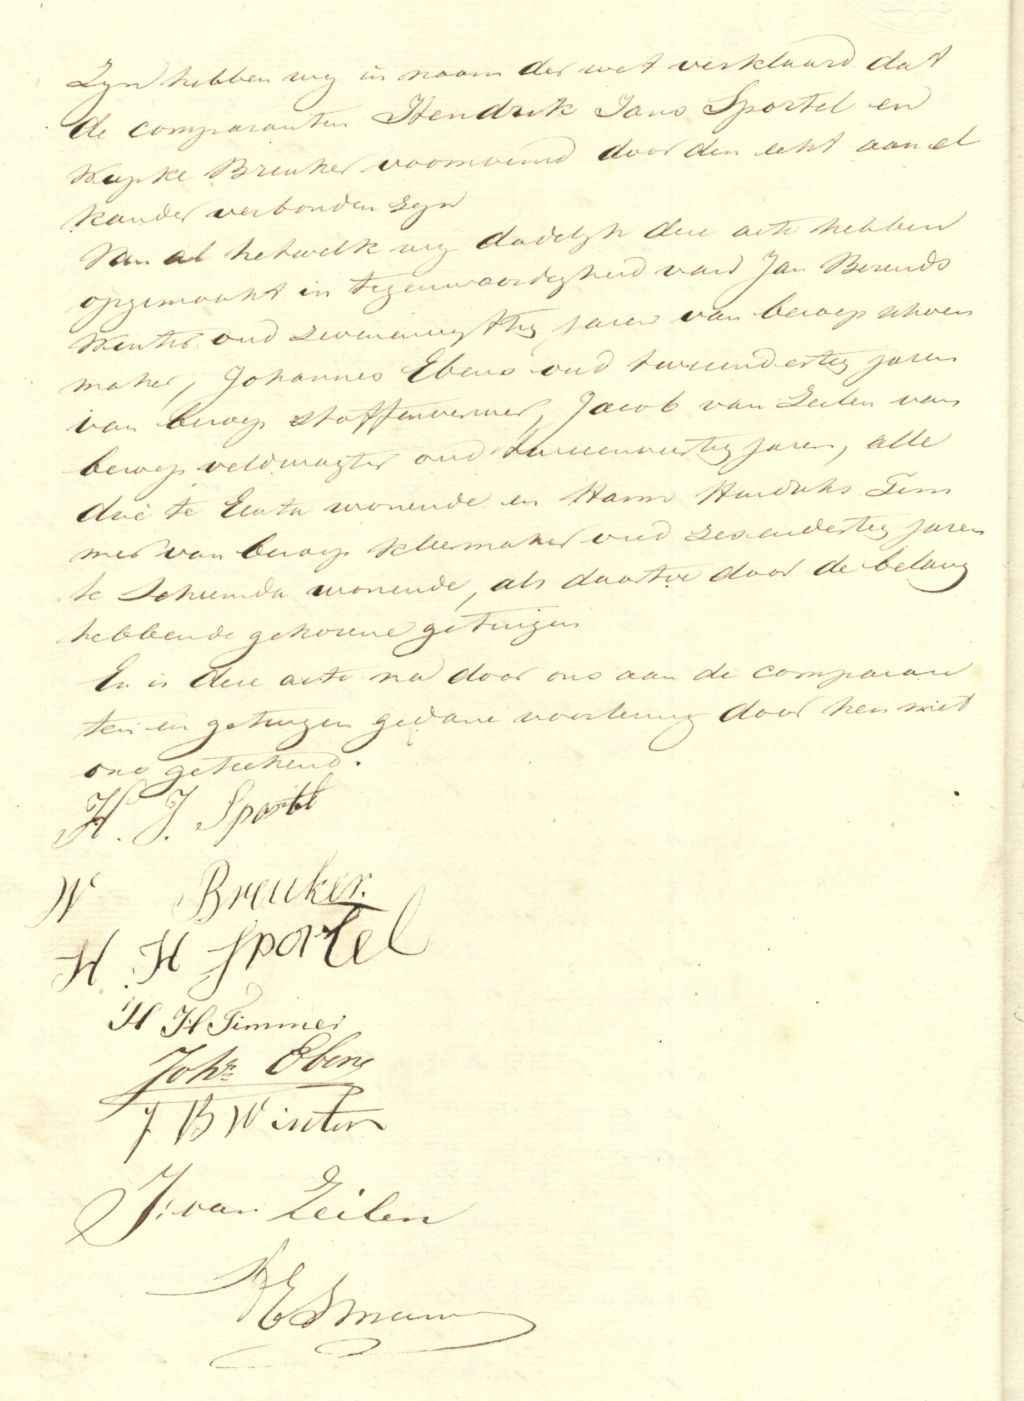 Zyn hebben wy in naam der wet verklaard dat
de comparanten Hendrik Jans Sportel en
Wupke Breuker voornoemd door den echt aan el
kander verbonden zyn
Van al hetwelk wy dadelyk deze acte hebben
opgemaakt in tegenwoordigheid van Jan Berends
Winter oud jaren van beroep schoen
maker, Johannes Ebens oud tweeendertig jaren
van beroep stoffenverwer, Jacob van Zeilen van
beroep veldwagter oud tweeenveertig jaren, alle
drie te Eexta wonende en Harm Hindriks Tim
mer van beroep kleermaker oud zesendertig jaren
te Scheemda wonende, als daartoe door de belang
hebbende gekozene getuigen
En is deze acte na door ons aan de comparan
ten en getuigen gedane voorlezing door hen met
ons geteekend.
H. J. Sportel
W Breuker.
H. H Sportel
H H Timmer
Johs Ebens
J B Winter
J. van Zeilen